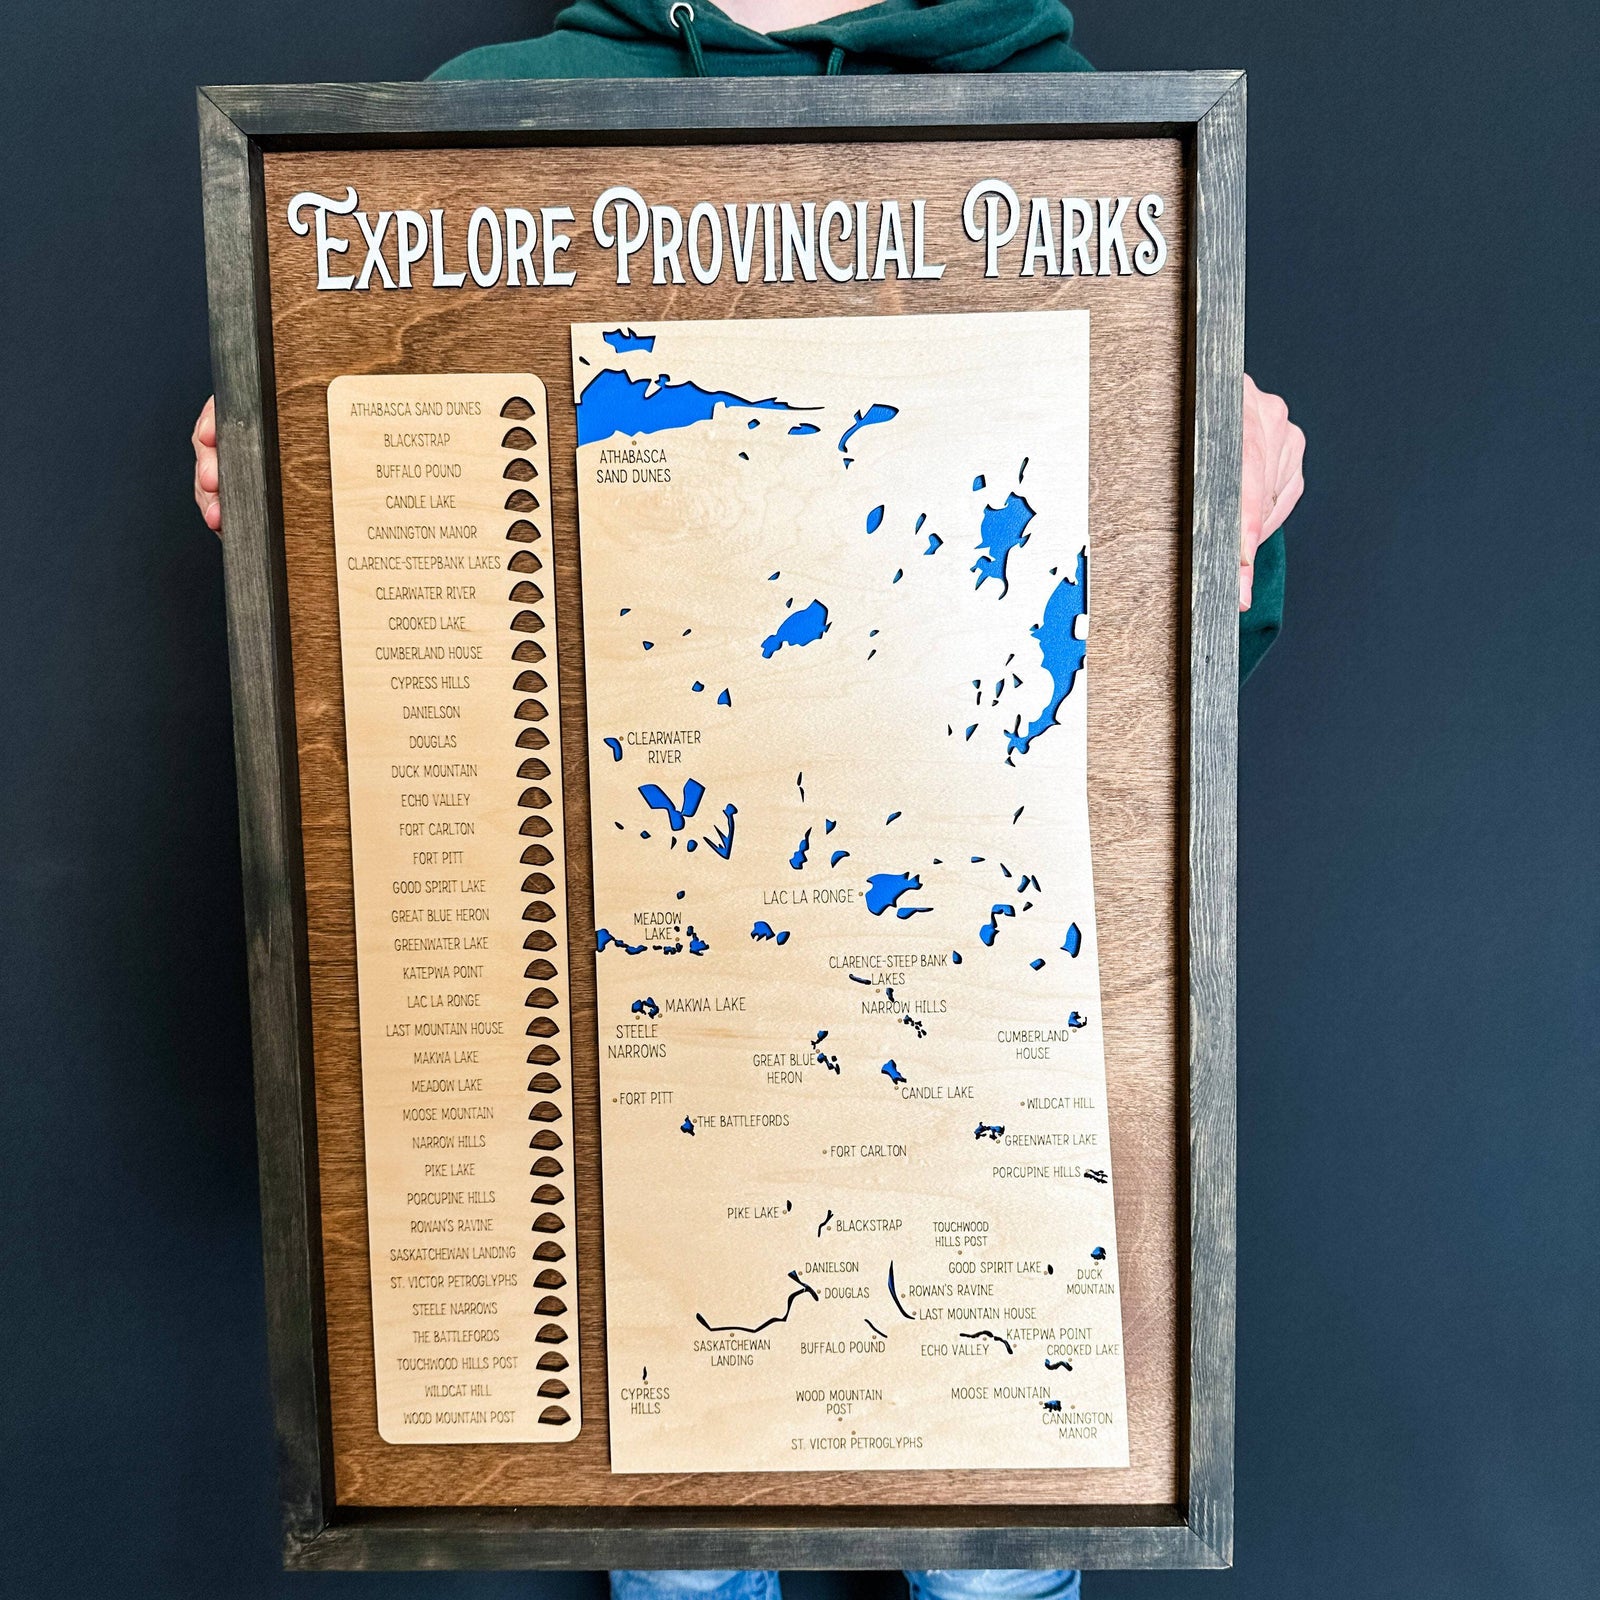 EXPLORE PROVINCIAL PARKS
ATHABASCA SAND DUNES
BLACKSTRAP
BUFFALO POUND
CANDLE LAKE
CANNINGTON MANOR
CLARENCE-STEEPBANK LAKES
CLEARWATER RIVER
CROOKED LAKE
CUMBERLAND HOUSE
CYPRESS HILLS
DANIELSON
DOUGLAS
DUCK MOUNTAIN
ECHO VALLEY
FORT CARLTON
FORT PITT
GOOD SPIRIT LAKE
GREAT BLUE HERON
GREENWATER LAKE
KATEPWA POINT
LAC LA RONGE
LAST MOUNTAIN HOUSE
MAKWA LAKE
MEADOW LAKE
MOOSE MOUNTAIN
NARROW HILLS
PIKE LAKE
PORCUPINE HILLS
ROWAN'S RAVINE
SASKATCHEWAN LANDING
ST. VICTOR PETROGLYPHS
STEELE NARROWS
THE BATTLEFORDS
TOUCHWOOD HILLS POST
WILDCAT HILL
WOOD MOUNTAIN POST
ATHABASCA
SAND DUNES
CLEARWATER
RIVER
LAC LA RONGE
MEADOW
LAKE
CLARENCE-STEEP BANK
LAKES
MAKWA LAKE
NARROW HILLS
STEELE
NARROWS
CUMBERLAND
HOUSE
GREAT BLUE
HERON
CANDLE LAKE
FORT PITT
WILDCAT HILL
THE BATTLEFORDS
GREENWATER LAKE
FORT CARLTON
PORCUPINE HILLS
PIKE LAKE
BLACKSTRAP
TOUCHWOOD
HILLS POST
DANIELSON
GOOD SPIRIT LAKE
DUCK
MOUNTAIN
DOUGLAS
ROWAN'S RAVINE
LAST MOUNTAIN HOUSE
SASKATCHEWAN
LANDING
BUFFALO POUND
KATEPWA POINT
ECHO VALLEY
CROOKED LAKE
CYPRESS
HILLS
WOOD MOUNTAIN
POST
MOOSE MOUNTAIN
CANNINGTON
MANOR
ST. VICTOR PETROGLYPHS